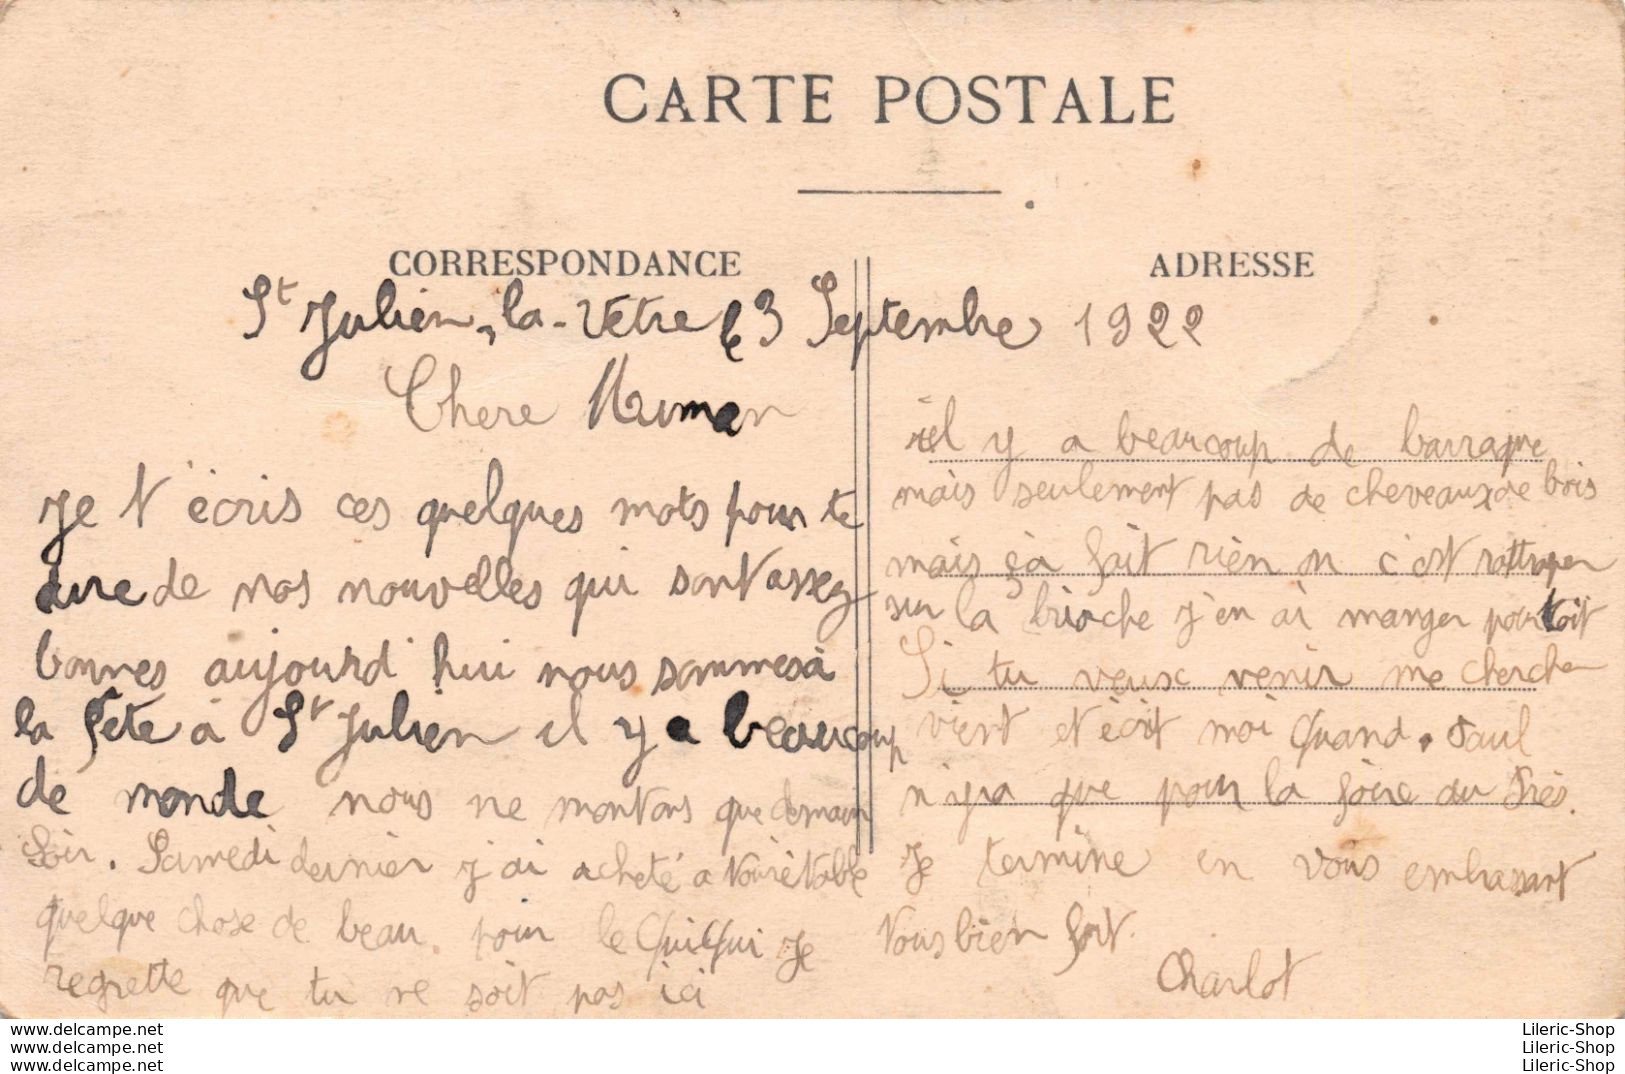 CARTE POSTALE
CORRESPONDANCE
ADRESSE
St Julien-la-Vêtre le 3 Septembre 1922
Chere Maman
Je t'écris ces quelques mots pour te
dire de nos nouvelles qui sont assez
bonnes aujourd'hui nous sommes à
la fête à St Julien il y a beaucoup
de monde nous ne montons que demain
Soir. Samedi dernier j'ai acheté a Noirétable
quelque chose de beau. pour le QuiQui Je
regrette que tu ne soit pas ici
il y a beaucoup de barraque
mais seulement pas de cheveaux de bois
mais ça fait rien on c'est rattraper
sur la brioche j'en ai manger pour toit
Si tu veux venir me chercher
vient et écrit moi Quand. Paul
n'yra que pour la foire du Prés.
Je termine en vous embrassant
Vous bien fort.
Charlot
Lileric-Shop.net
Lileric-Shop.net
Lileric-Shop.net
Lileric-Shop
Lileric-Shop
Lileric-Shop